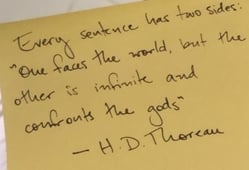 Every sentence has two sides:
"One faces the world, but the
other is infinite and
confronts the gods"
— H.D. Thoreau